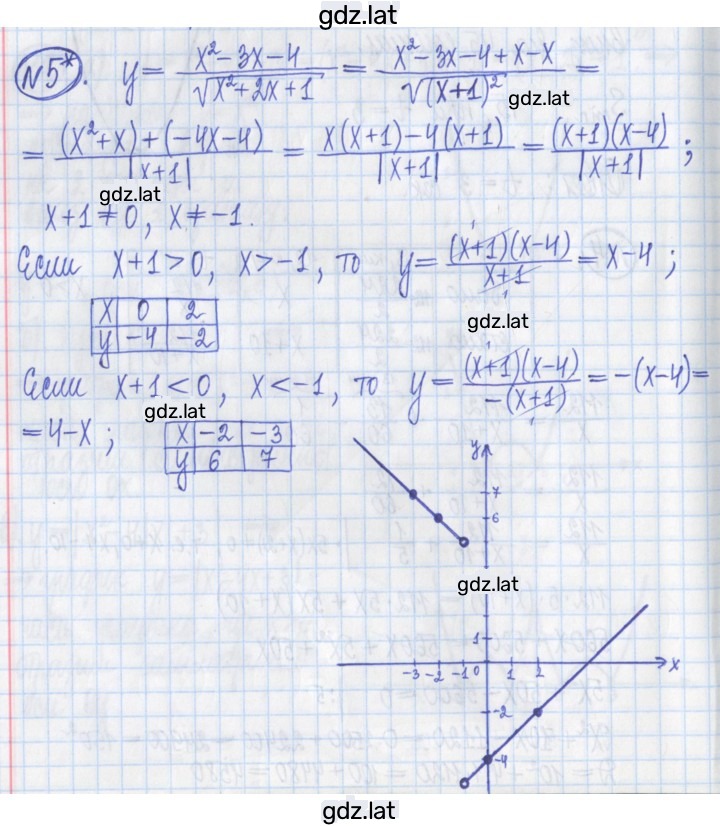 gdz.lat
N5*. y = (x² − 3x − 4)/√(x² + 2x + 1) = (x² − 3x − 4 + x − x)/√((x+1)²) =
gdz.lat
= ((x² + x) + (−4x − 4))/|x+1| = (x(x+1) − 4(x+1))/|x+1| = ((x+1)(x−4))/|x+1| ;
gdz.lat
x+1 ≠ 0, x ≠ −1.
Если x+1 > 0, x > −1, то y = ((x+1)(x−4))/(x+1) = x−4 ;
x 0 2
y −4 −2
gdz.lat
Если x+1 < 0, x < −1, то y = ((x+1)(x−4))/(−(x+1)) = −(x−4) =
gdz.lat
= 4−x ;
x −2 −3
y 6 7
y
7
6
gdz.lat
1
−3 −2 −1 0 1 2 x
−2
−4
gdz.lat